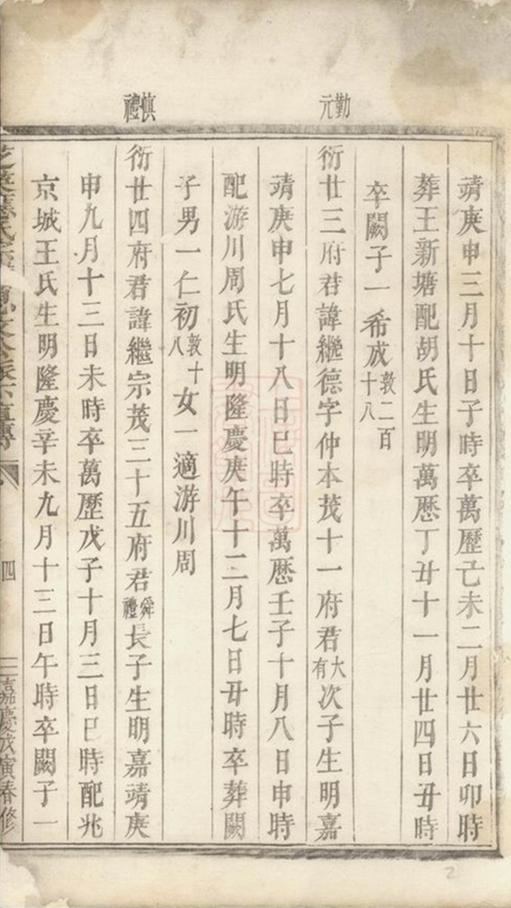 勤元
慎禮
靖庚申三月十日子時卒萬歷己未二月廿六日卯時
葬王新塘配胡氏生明萬歷丁丑十一月廿四日丑時
卒闕子一希成敦二百十八
衍廿三府君諱繼德字仲本茂十一府君大有次子生明嘉
靖庚申七月十八日巳時卒萬歷壬子十月八日申時
配游川周氏生明隆慶庚午十二月七日丑時卒葬闕
子男一仁初敦十八女一適游川周
衍廿四府君諱繼宗茂三十五府君舜禮長子生明嘉靖庚
申九月十三日未時卒萬歷戊子十月三日巳時配兆
京城王氏生明隆慶辛未九月十三日午時卒闕子一
四
嘉慶戊寅春修